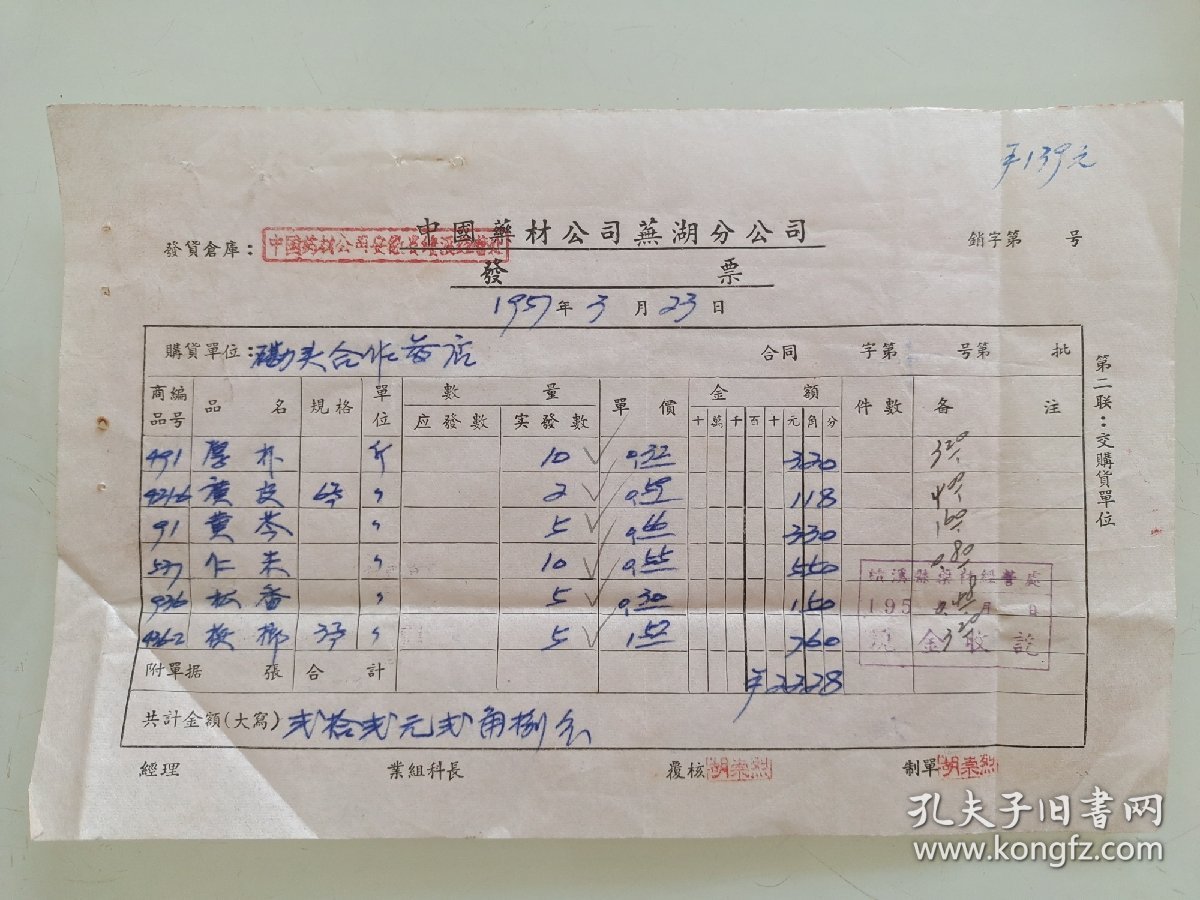 平139元
中國藥材公司蕪湖分公司
發貨倉庫：
銷字第 号
發 票
1957年3月23日
購貨單位：磡头合作药店 合同 字第 号第 批
商編品号 品名 規格 單位 數量 應發數 实發數 單價 金額 十萬千百十元角分 件數 备注
491 厚朴 斤 10 0.32 320 320
4216 广皮 2 0.59 118
91 黄芩 5 0.66 330 160
537 10 0.55 550 0.80
936 5 0.30 150
4362 槟榔 5 1.52 760 320
附單据 張 合計 2228
共計金額(大寫) 弍拾弍元弍角捌分
經理 業組科長 覆核 制單
第二联：交購貨單位
績溪縣藥材經營處
195 月 日
現金收訖
孔夫子旧书网
www.kongfz.com